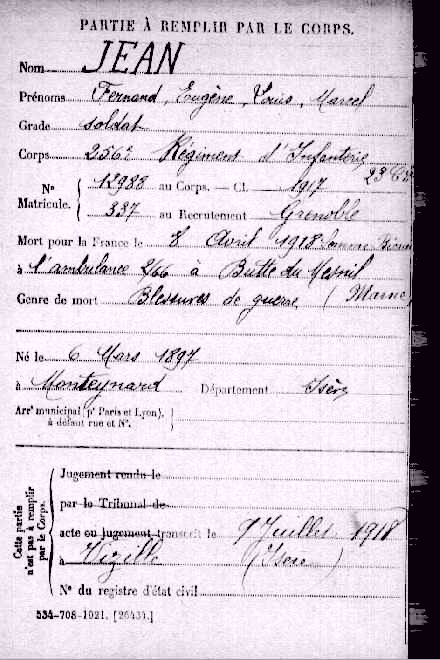 PARTIE À REMPLIR PAR LE CORPS.
Nom JEAN
Prénoms Fernand, Eugène, Louis, Marcel
Grade soldat
Corps 256e Régiment d'Infanterie, 23 Cie
N° Matricule. { 12988 au Corps. — Cl. 1917
337 au Recrutement Grenoble
Mort pour la France le 8 Avril 1918
à l'ambulance 2/66 à Butte du Mesnil
Genre de mort Blessures de guerre (Marne
Né le 6 Mars 1897
à Monteynard Département Isère
Arrt municipal (pr Paris et Lyon),
à défaut rue et N°.
Cette partie n'est pas à remplir par le Corps.
Jugement rendu le
par le Tribunal de
acte ou jugement transcrit le 9 Juillet 1918
à Vizille (Isère)
N° du registre d'état civil
534-708-1921. [26434.]